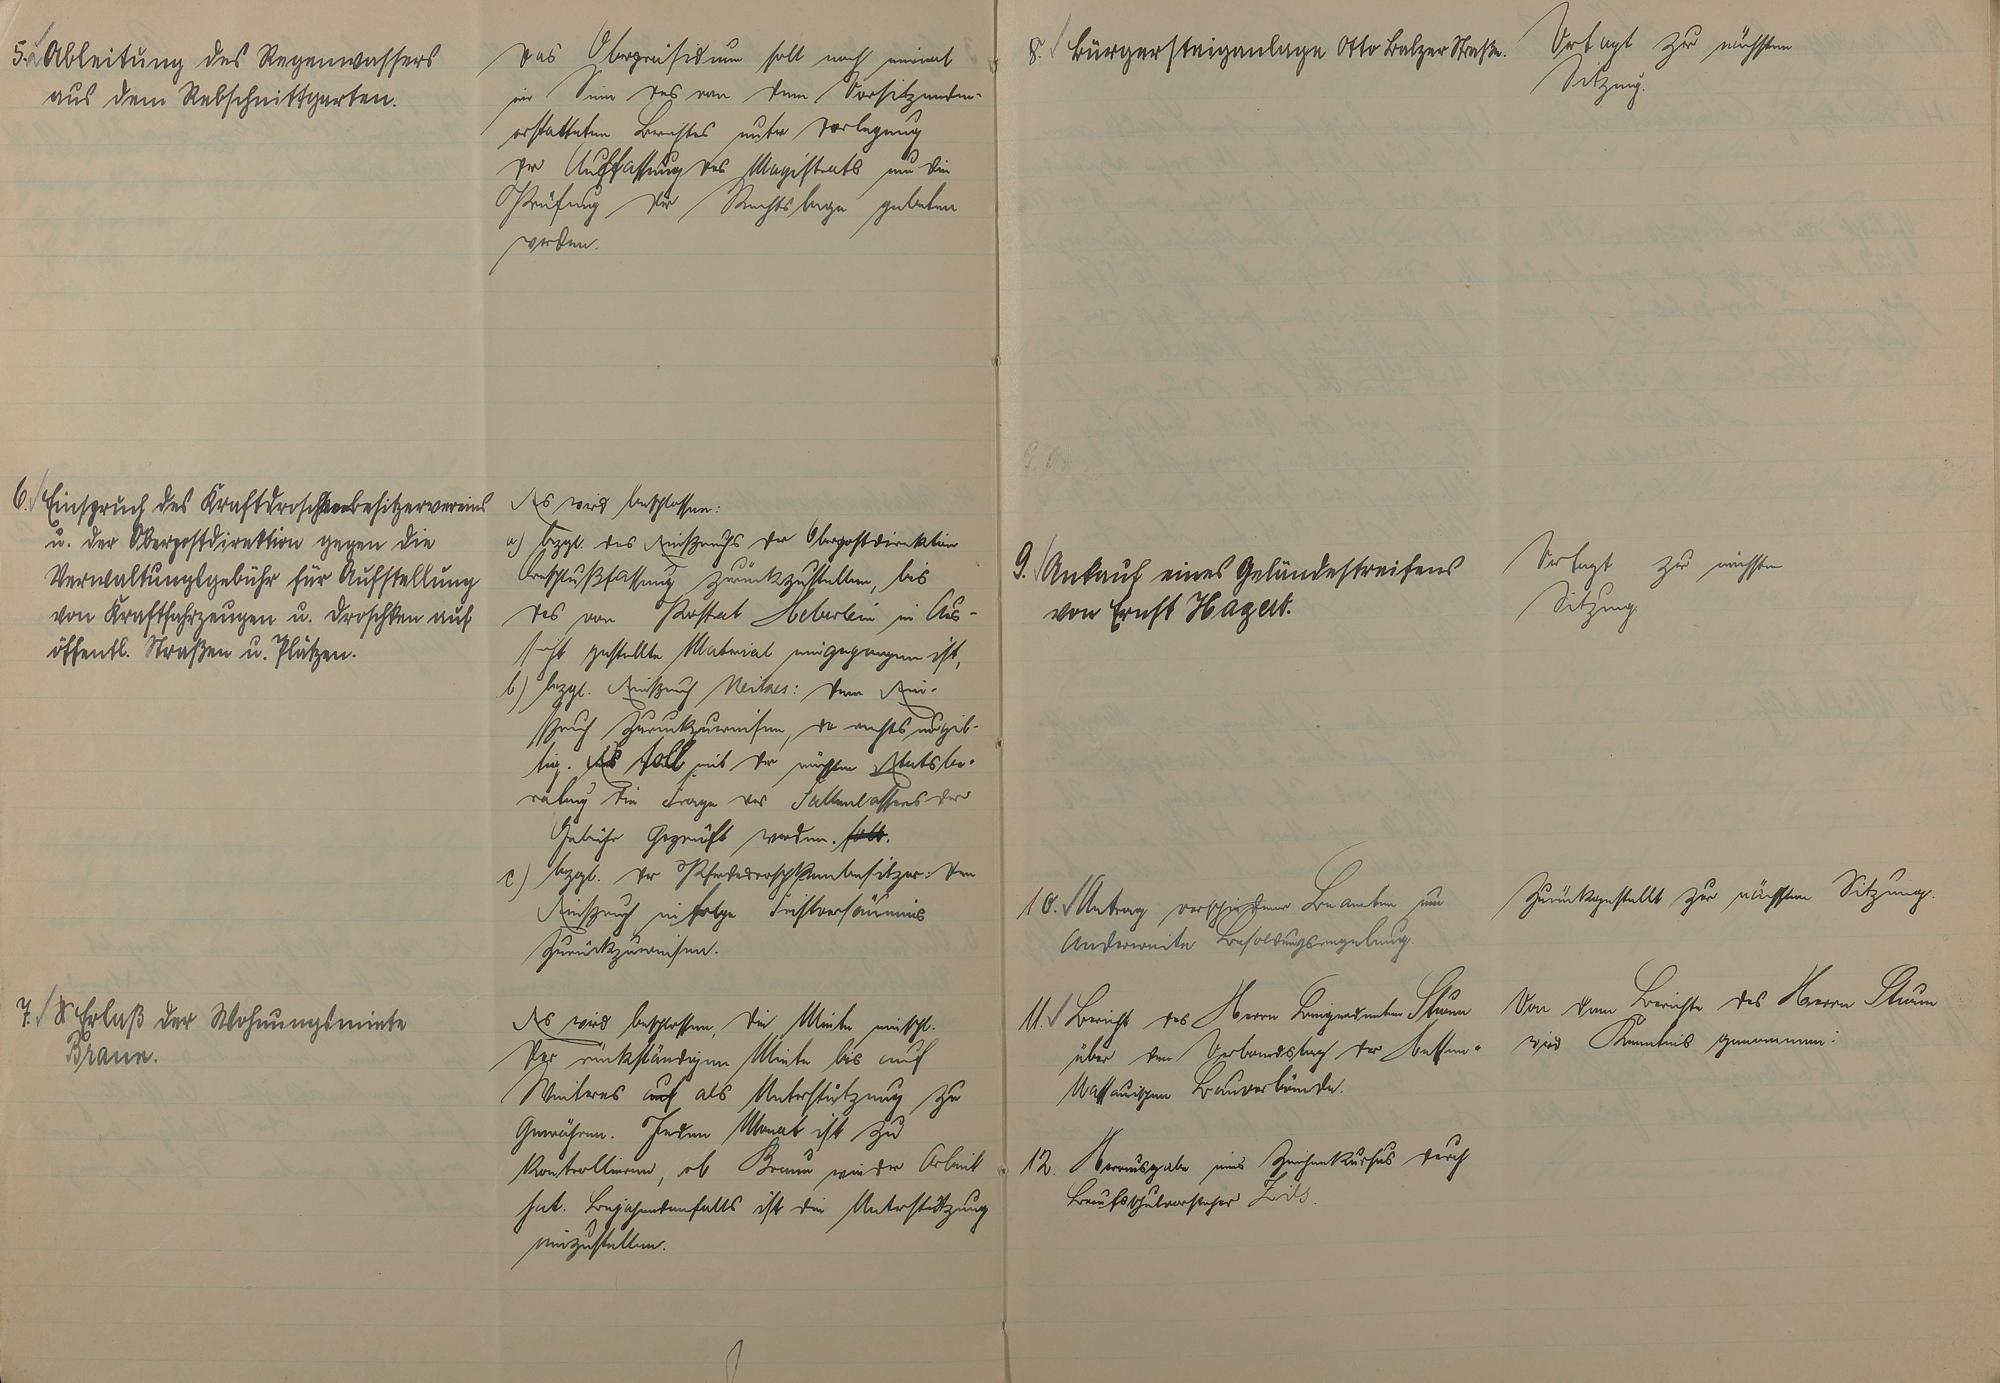 5. Ableitung des Regenwassers
aus dem Rebschnittgarten.
Das Oberpräsidium soll noch einmal
im Sinne des von dem Vorsitzenden
erstatteten Berichtes unter Darlegung
der Auffassung des Magistrats um die
Prüfung der Rechtslage gebeten
werden.
6. Einspruch des Kraftdroschkenbesitzervereins
u. der Oberpostdirektion gegen die
Verwaltungsgebühr für Aufstellung
von Kraftfahrzeugen u. Droschken auf
öffentl. Straßen u. Plätzen.
Es wird beschlossen:
a) bezgl. des Einspruchs der Oberpostdirektion
Beschlußfassung zurückzustellen, bis
das von Postrat Heberlein in Aus-
sicht gestellte Material eingegangen ist,
b) bezgl. Einspruch Meitzes: den Ein-
spruch zurückzuweisen, da rechtsungül-
tig. Es soll mit der nächsten Etatsbe-
ratung die Frage des Fallenlassens der
Gebühr geprüft werden.
c) bezgl. der Pferdedroschkenbesitzer: den
Einspruch infolge Fristversäumnis
zurückzuweisen.
7. Erlaß der Wohnungsmiete
Braun.
Es wird beschlossen, die Miete einschl.
der rückständigen Miete bis auf
Weiteres als Unterstützung zu
gewähren. Jeden Monat ist zu
kontrollieren, ob Braun wieder Arbeit
hat. Bejahendenfalls ist die Unterstützung
einzustellen.
8. Bürgersteiganlage Otto Balzer Straße.
Vertagt zur nächsten
Sitzung.
9. Ankauf eines Geländestreifens
von Ernst Hagert.
Vertagt zur nächsten
Sitzung.
10. Antrag verschiedener Beamten um
Anderweite Besoldungsregelung.
Zurückgestellt zur nächsten Sitzung.
11. Bericht des Herrn Beigeordneten Sturm
über den Verbandstag der Hessen-
Nassauischen Bauverbände.
Von dem Berichte des Herrn Sturm
wird Kenntnis genommen.
12. Herausgabe eines Zeichenkurses durch
Berufsschulvorsteher Zeils.